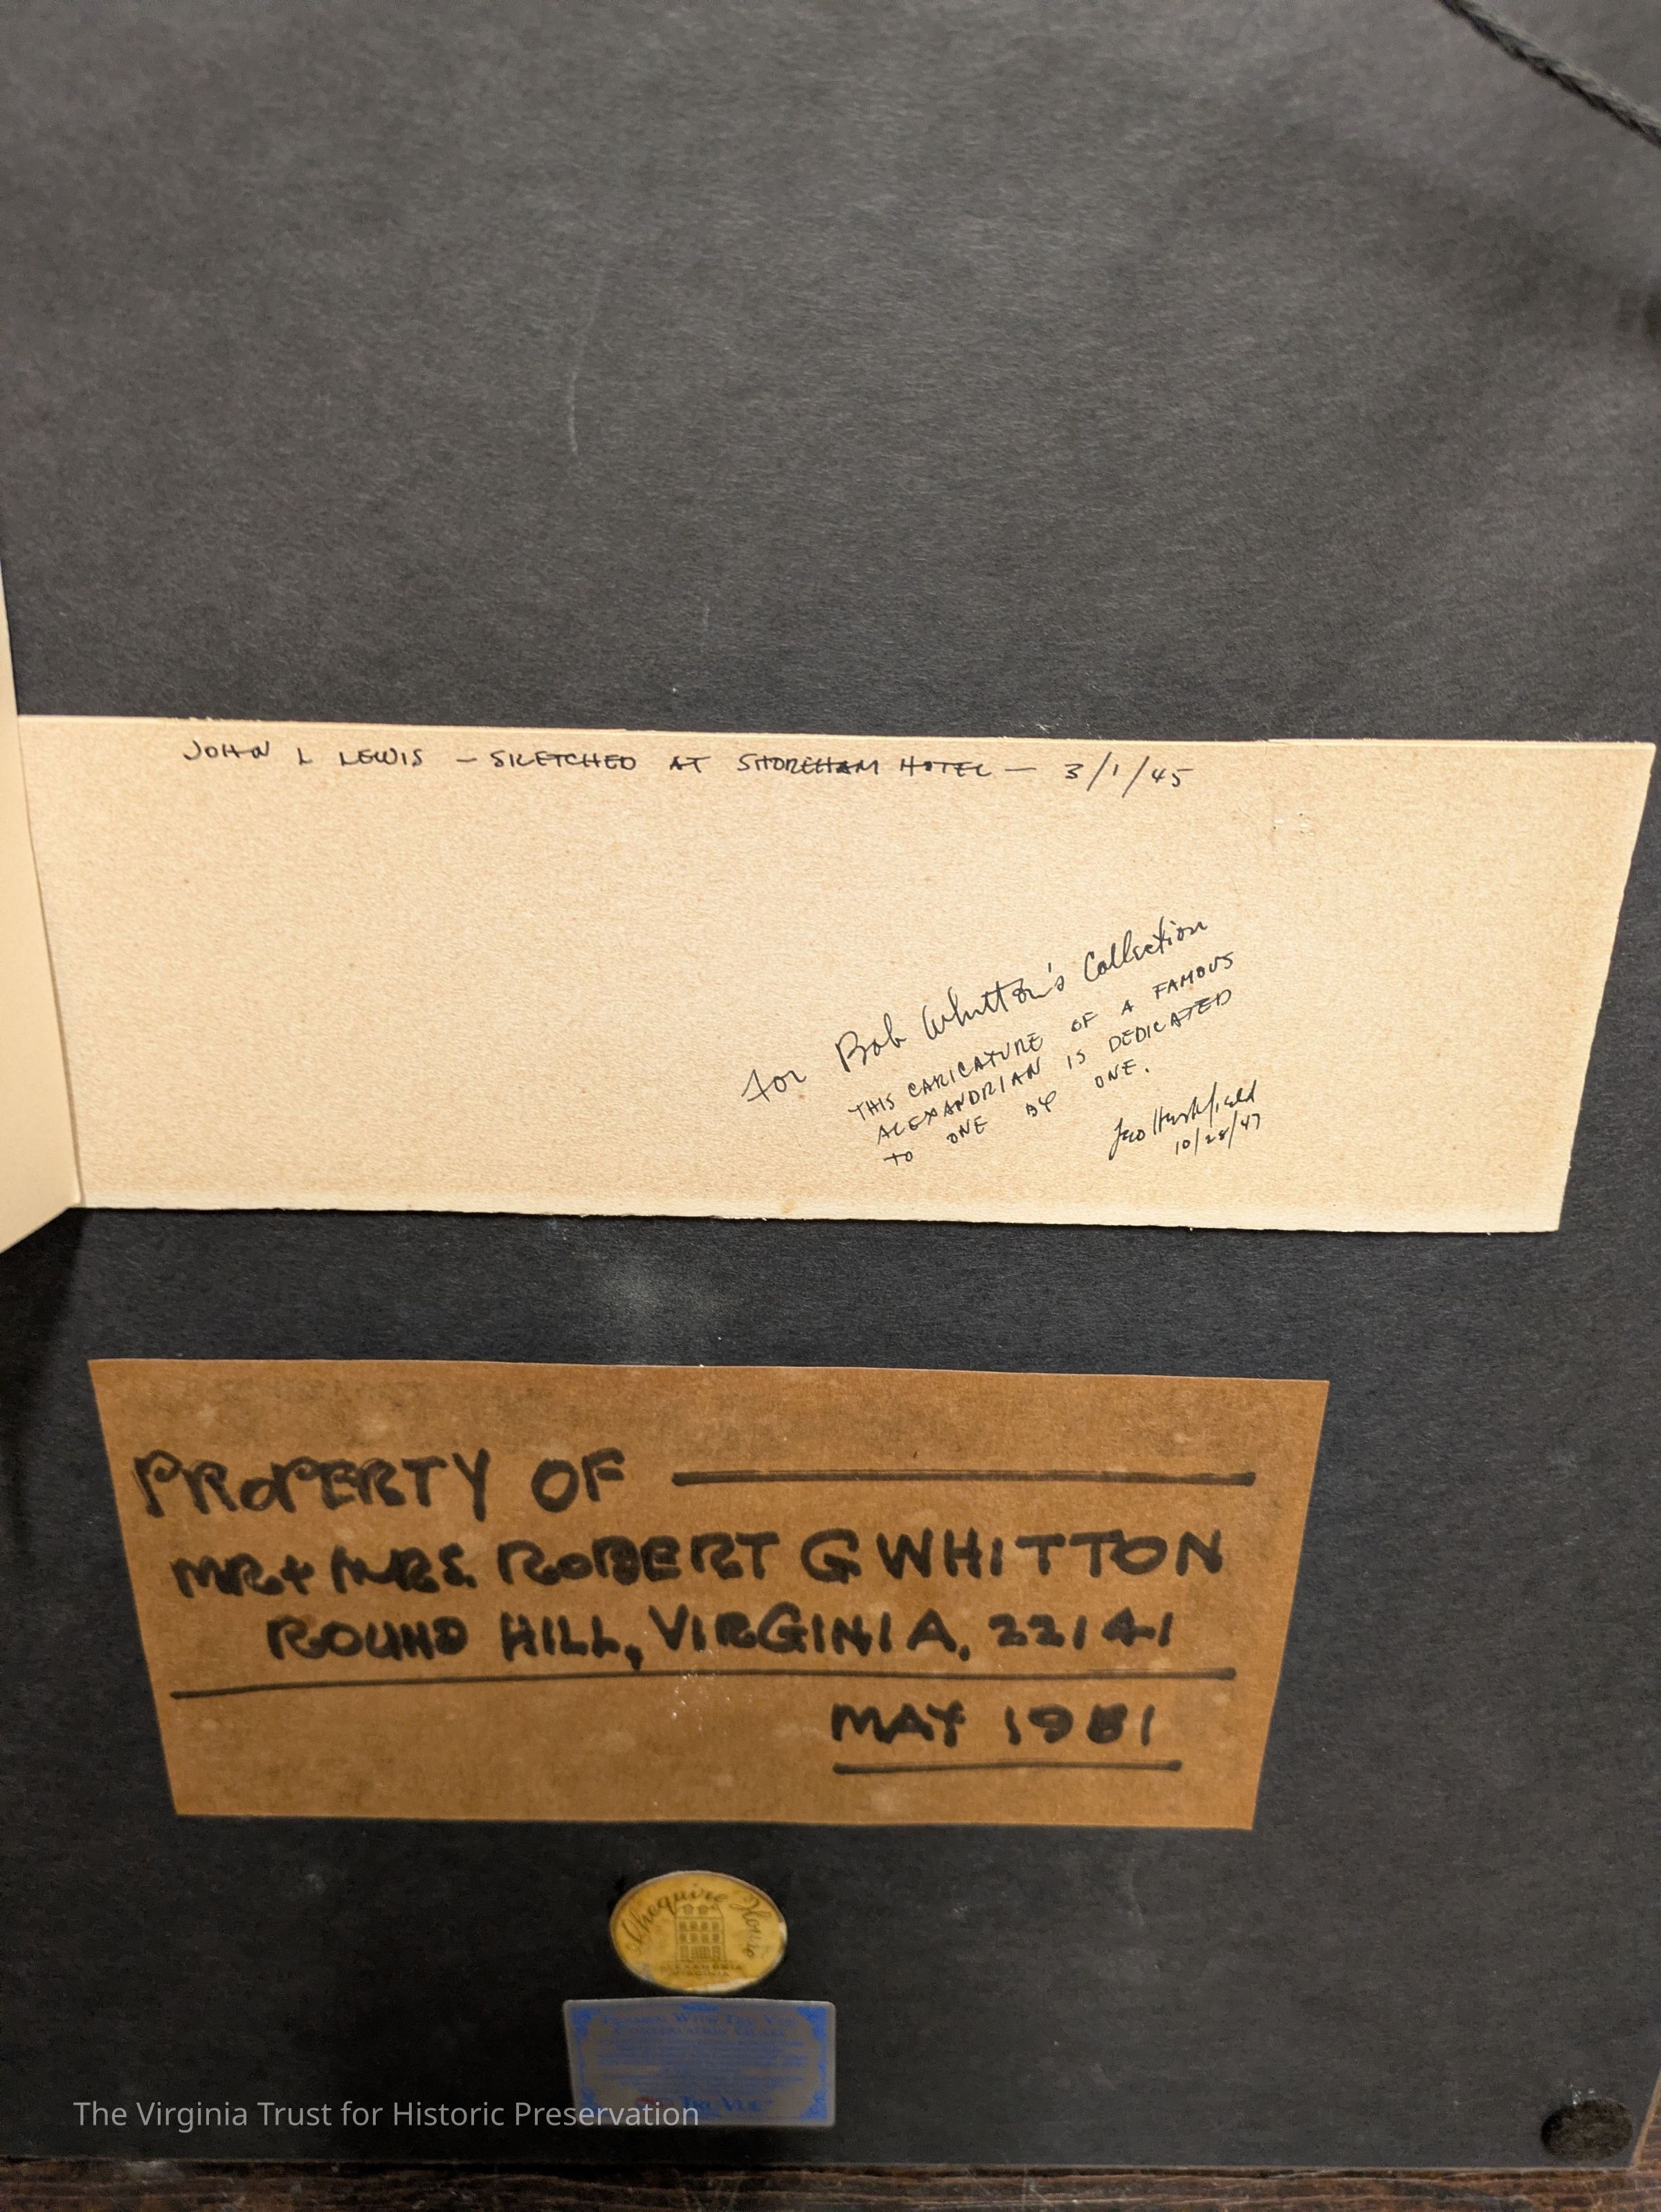 JOHN L LEWIS — SKETCHED AT SHOREHAM HOTEL — 3/1/45
For Bob Whitton's Collection
THIS CARICATURE OF A FAMOUS
ALEXANDRIAN IS DEDICATED
TO ONE BY ONE.
Leo Hershfield
10/28/47
PROPERTY OF
MR + MRS. ROBERT G WHITTON
ROUND HILL, VIRGINIA, 22141
MAY 1981
Chequire House
ALEXANDRIA
VIRGINIA
TRU VUE
The Virginia Trust for Historic Preservation